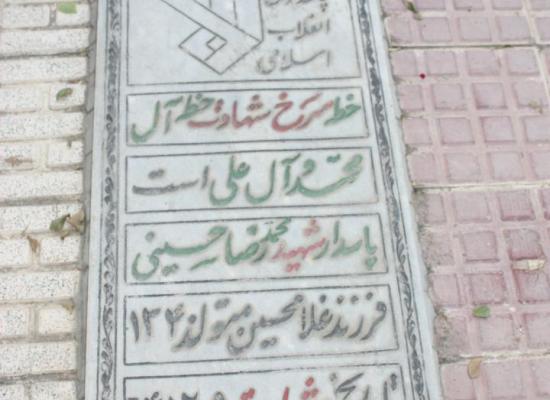 انقلاب
اسلامی
خط سرخ شهادت خط آل
محمد و آل علی است
پاسدار شهید محمدرضا حسینی
فرزند غلامحسین متولد ۱۳۴۰
تاریخ شهادت